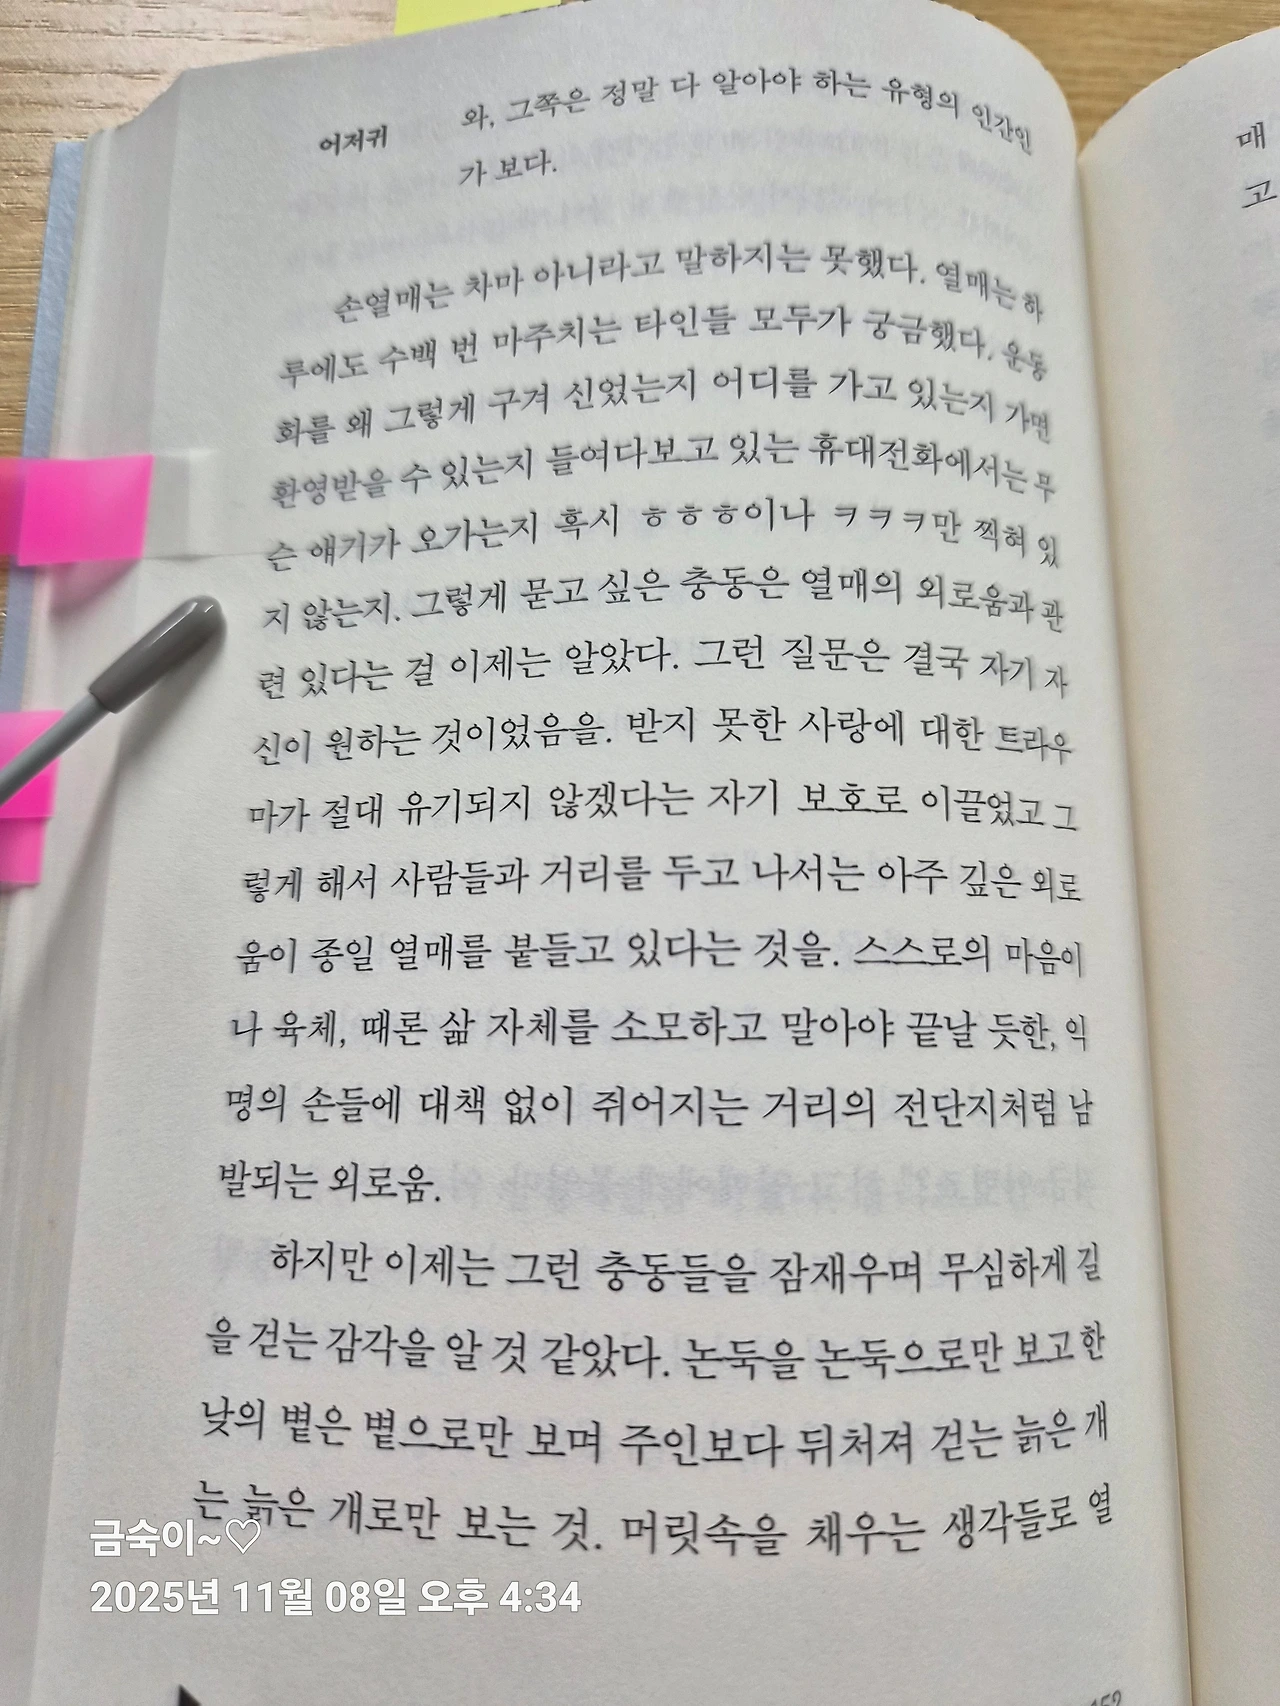 어저귀 와, 그쪽은 정말 다 알아야 하는 유형의 인간인
가 보다.
손열매는 차마 아니라고 말하지는 못했다. 열매는 하
루에도 수백 번 마주치는 타인들 모두가 궁금했다. 운동
화를 왜 그렇게 구겨 신었는지 어디를 가고 있는지 가면
환영받을 수 있는지 들여다보고 있는 휴대전화에서는 무
슨 얘기가 오가는지 혹시 ㅎㅎㅎ이나 ㅋㅋㅋ만 찍혀 있
지 않는지. 그렇게 묻고 싶은 충동은 열매의 외로움과 관
련 있다는 걸 이제는 알았다. 그런 질문은 결국 자기 자
신이 원하는 것이었음을. 받지 못한 사랑에 대한 트라우
마가 절대 유기되지 않겠다는 자기 보호로 이끌었고 그
렇게 해서 사람들과 거리를 두고 나서는 아주 깊은 외로
움이 종일 열매를 붙들고 있다는 것을. 스스로의 마음이
나 육체, 때론 삶 자체를 소모하고 말아야 끝날 듯한, 익
명의 손들에 대책 없이 쥐어지는 거리의 전단지처럼 남
발되는 외로움.
하지만 이제는 그런 충동들을 잠재우며 무심하게 길
을 걷는 감각을 알 것 같았다. 논둑을 논둑으로만 보고 한
낮의 볕은 볕으로만 보며 주인보다 뒤처져 걷는 늙은 개
는 늙은 개로만 보는 것. 머릿속을 채우는 생각들로 열
금숙이~♡
2025년 11월 08일 오후 4:34
매
고